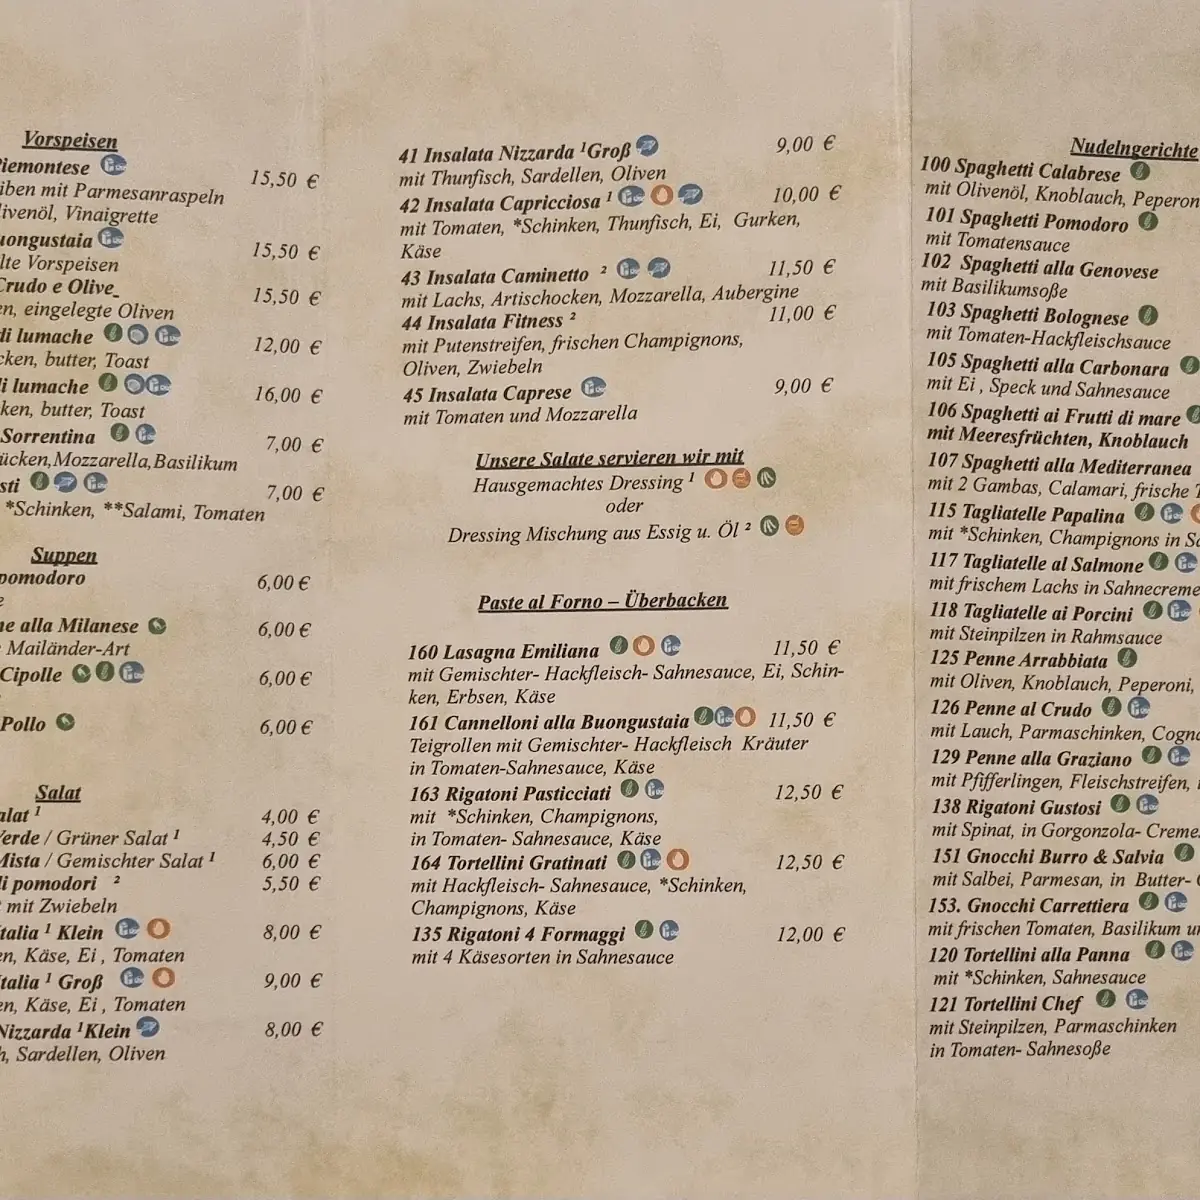 Vorspeisen
Piemontese 15,50 €
iben mit Parmesanraspeln
livenöl, Vinaigrette
uongustaia 15,50 €
lte Vorspeisen
Crudo e Olive_ 15,50 €
en, eingelegte Oliven
di lumache 12,00 €
cken, butter, Toast
di lumache 16,00 €
ken, butter, Toast
Sorrentina 7,00 €
ücken,Mozzarella,Basilikum
sti 7,00 €
*Schinken, **Salami, Tomaten
Suppen
pomodoro 6,00 €
e
ne alla Milanese 6,00 €
Mailänder-Art
Cipolle 6,00 €
Pollo 6,00 €
Salat
alat ¹ 4,00 €
Verde / Grüner Salat ¹ 4,50 €
Mista / Gemischter Salat ¹ 6,00 €
di pomodori ² 5,50 €
mit Zwiebeln
Italia ¹ Klein 8,00 €
en, Käse, Ei , Tomaten
Italia ¹ Groß 9,00 €
en, Käse, Ei , Tomaten
Nizzarda ¹Klein 8,00 €
h, Sardellen, Oliven
41 Insalata Nizzarda ¹Groß 9,00 €
mit Thunfisch, Sardellen, Oliven
42 Insalata Capricciosa ¹ 10,00 €
mit Tomaten, *Schinken, Thunfisch, Ei, Gurken,
Käse
43 Insalata Caminetto ² 11,50 €
mit Lachs, Artischocken, Mozzarella, Aubergine
44 Insalata Fitness ² 11,00 €
mit Putenstreifen, frischen Champignons,
Oliven, Zwiebeln
45 Insalata Caprese 9,00 €
mit Tomaten und Mozzarella
Unsere Salate servieren wir mit
Hausgemachtes Dressing ¹
oder
Dressing Mischung aus Essig u. Öl ²
Paste al Forno – Überbacken
160 Lasagna Emiliana 11,50 €
mit Gemischter- Hackfleisch- Sahnesauce, Ei, Schin-
ken, Erbsen, Käse
161 Cannelloni alla Buongustaia 11,50 €
Teigrollen mit Gemischter- Hackfleisch Kräuter
in Tomaten-Sahnesauce, Käse
163 Rigatoni Pasticciati 12,50 €
mit *Schinken, Champignons,
in Tomaten- Sahnesauce, Käse
164 Tortellini Gratinati 12,50 €
mit Hackfleisch- Sahnesauce, *Schinken,
Champignons, Käse
135 Rigatoni 4 Formaggi 12,00 €
mit 4 Käsesorten in Sahnesauce
Nudelngerichte
100 Spaghetti Calabrese
mit Olivenöl, Knoblauch, Peperon
101 Spaghetti Pomodoro
mit Tomatensauce
102 Spaghetti alla Genovese
mit Basilikumsoße
103 Spaghetti Bolognese
mit Tomaten-Hackfleischsauce
105 Spaghetti alla Carbonara
mit Ei , Speck und Sahnesauce
106 Spaghetti ai Frutti di mare
mit Meeresfrüchten, Knoblauch
107 Spaghetti alla Mediterranea
mit 2 Gambas, Calamari, frische T
115 Tagliatelle Papalina
mit *Schinken, Champignons in Sa
117 Tagliatelle al Salmone
mit frischem Lachs in Sahnecreme
118 Tagliatelle ai Porcini
mit Steinpilzen in Rahmsauce
125 Penne Arrabbiata
mit Oliven, Knoblauch, Peperoni,
126 Penne al Crudo
mit Lauch, Parmaschinken, Cogna
129 Penne alla Graziano
mit Pfifferlingen, Fleischstreifen,
138 Rigatoni Gustosi
mit Spinat, in Gorgonzola- Creme
151 Gnocchi Burro & Salvia
mit Salbei, Parmesan, in Butter-
153. Gnocchi Carrettiera
mit frischen Tomaten, Basilikum u
120 Tortellini alla Panna
mit *Schinken, Sahnesauce
121 Tortellini Chef
mit Steinpilzen, Parmaschinken
in Tomaten- Sahnesoße